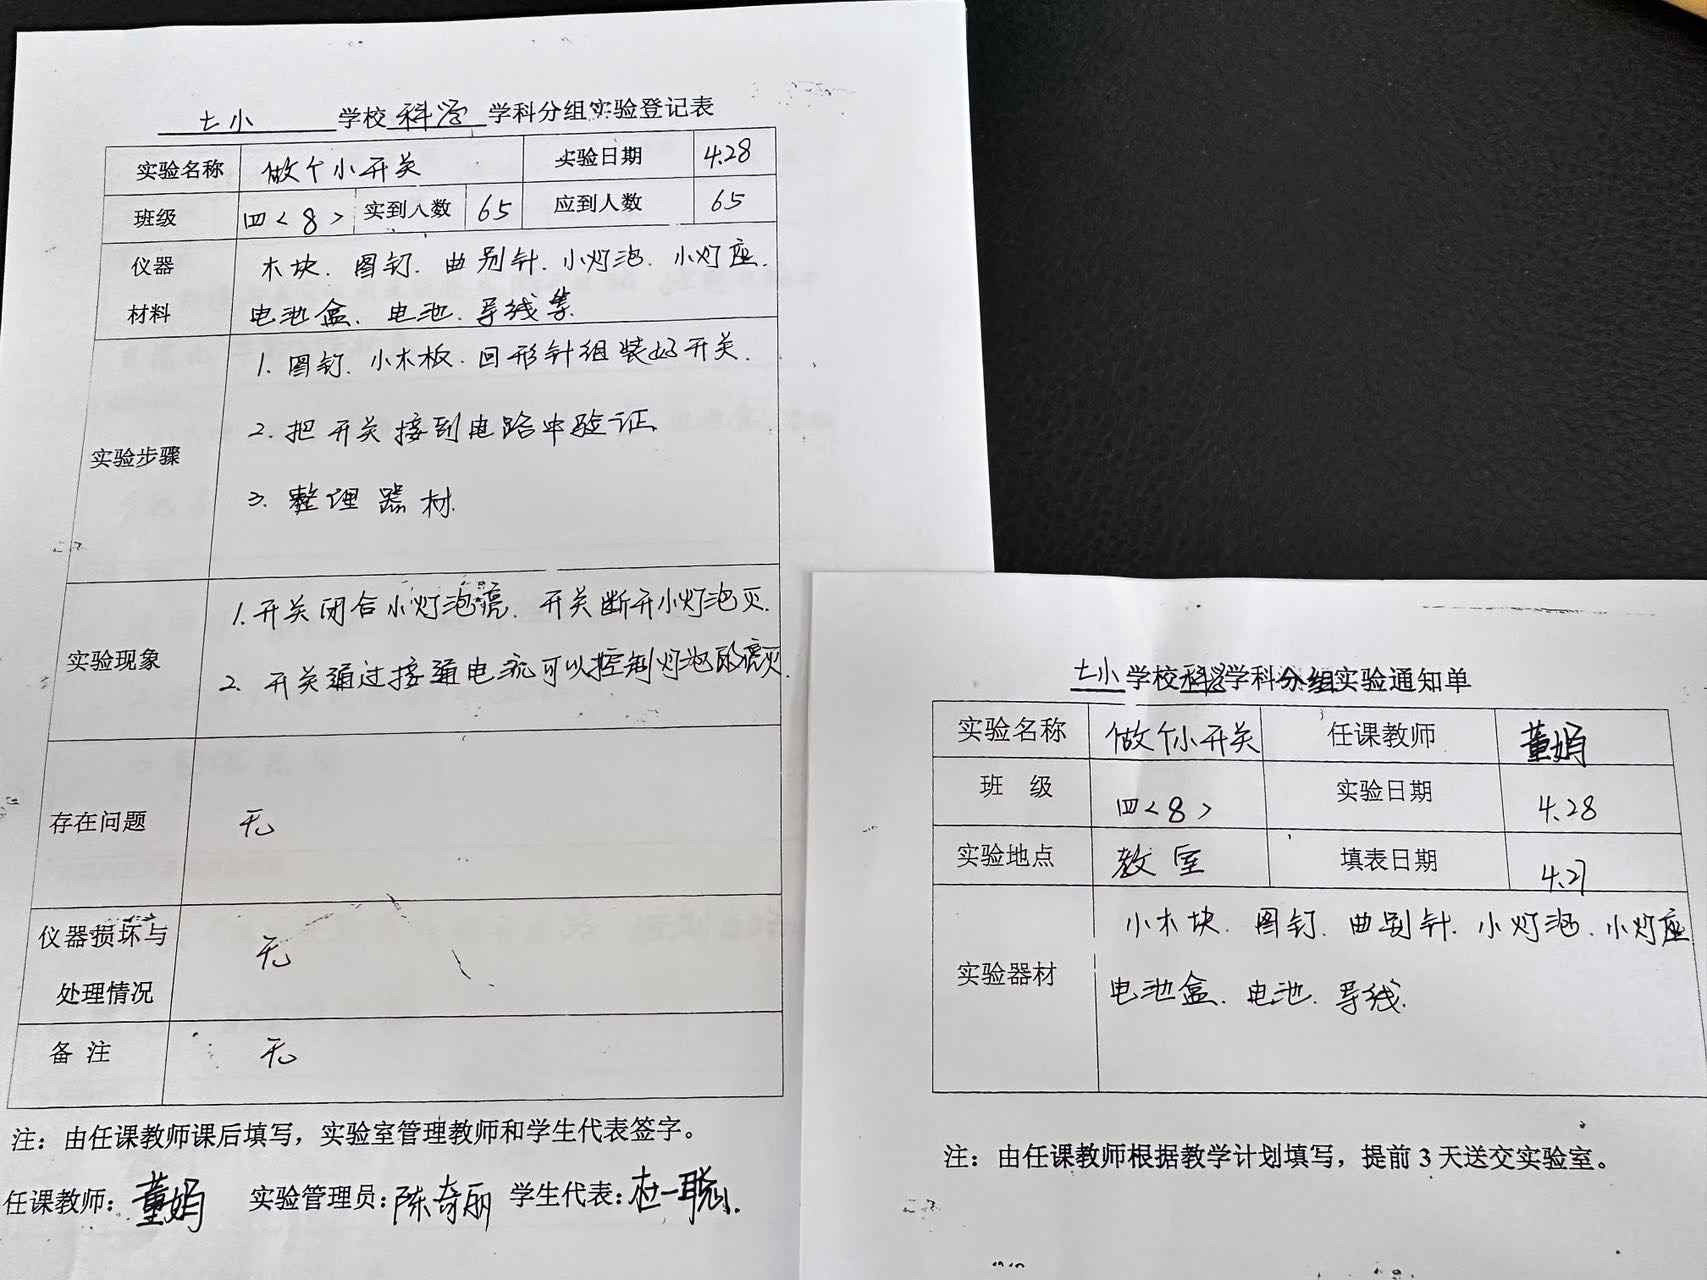 七小 学校 科学 学科分组实验登记表
实验名称 做个小开关 实验日期 4.28
班级 四<8> 实到人数 65 应到人数 65
仪器 木块. 图钉. 曲别针. 小灯泡. 小灯座.
材料 电池盒. 电池. 导线等.
1. 图钉. 小木板. 回形针组装好开关.
2. 把开关接到电路中验证.
实验步骤
3. 整理器材.
1. 开关闭合小灯泡亮. 开关断开小灯泡灭.
实验现象
2. 开关通过接通电流可以控制灯泡的亮灭.
存在问题 无
仪器损坏与
处理情况
无
备 注 无
注：由任课教师课后填写，实验室管理教师和学生代表签字。
任课教师：董娟 实验管理员：陈奇丽 学生代表：杜一聪.
七小学校科学学科分组实验通知单
实验名称 做个小开关 任课教师 董娟
班 级 四<8> 实验日期 4.28
实验地点 教室 填表日期 4.21
小木块. 图钉. 曲别针. 小灯泡. 小灯座
实验器材
电池盒. 电池. 导线.
注：由任课教师根据教学计划填写，提前 3 天送交实验室。